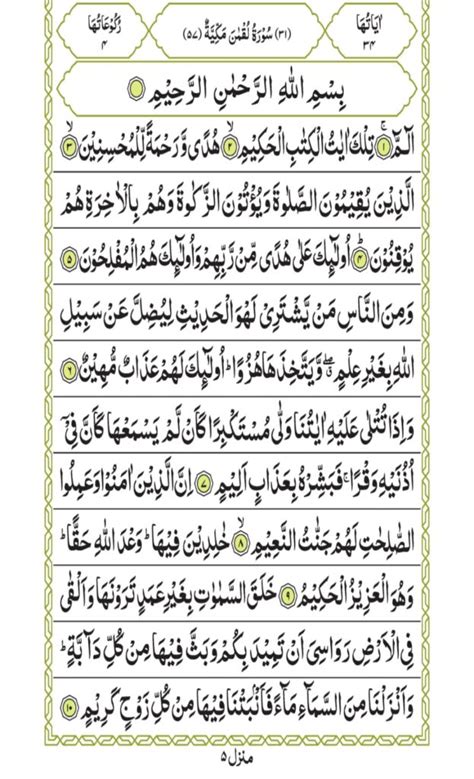 اٰيَاتُهَا ٣٤
(٣١) سُوْرَةُ لُقْمٰنَ مَكِّيَّةٌ (٥٧)
رُكُوْعَاتُهَا ٤
بِسْمِ اللهِ الرَّحْمٰنِ الرَّحِيْمِ
الٓمّٓ ۚ﴿١﴾ تِلْكَ اٰيٰتُ الْكِتٰبِ الْحَكِيْمِ ۙ﴿٢﴾ هُدًى وَّرَحْمَةً لِّلْمُحْسِنِيْنَ ۙ﴿٣﴾
الَّذِيْنَ يُقِيْمُوْنَ الصَّلٰوةَ وَيُؤْتُوْنَ الزَّكٰوةَ وَهُمْ بِالْاٰخِرَةِ هُمْ
يُوْقِنُوْنَ ؕ﴿٤﴾ اُولٰٓئِكَ عَلٰى هُدًى مِّنْ رَّبِّهِمْ وَاُولٰٓئِكَ هُمُ الْمُفْلِحُوْنَ ﴿٥﴾
وَمِنَ النَّاسِ مَنْ يَّشْتَرِيْ لَهْوَ الْحَدِيْثِ لِيُضِلَّ عَنْ سَبِيْلِ
اللهِ بِغَيْرِ عِلْمٍ ۖ وَّيَتَّخِذَهَا هُزُوًا ؕ اُولٰٓئِكَ لَهُمْ عَذَابٌ مُّهِيْنٌ ﴿٦﴾
وَاِذَا تُتْلٰى عَلَيْهِ اٰيٰتُنَا وَلّٰى مُسْتَكْبِرًا كَاَنْ لَّمْ يَسْمَعْهَا كَاَنَّ فِيْٓ
اُذُنَيْهِ وَقْرًا ۚ فَبَشِّرْهُ بِعَذَابٍ اَلِيْمٍ ﴿٧﴾ اِنَّ الَّذِيْنَ اٰمَنُوْا وَعَمِلُوا
الصّٰلِحٰتِ لَهُمْ جَنّٰتُ النَّعِيْمِ ۙ﴿٨﴾ خٰلِدِيْنَ فِيْهَا ؕ وَعْدَ اللهِ حَقًّا ؕ
وَهُوَ الْعَزِيْزُ الْحَكِيْمُ ﴿٩﴾ خَلَقَ السَّمٰوٰتِ بِغَيْرِ عَمَدٍ تَرَوْنَهَا وَاَلْقٰى
فِى الْاَرْضِ رَوَاسِيَ اَنْ تَمِيْدَ بِكُمْ وَبَثَّ فِيْهَا مِنْ كُلِّ دَآبَّةٍ ؕ
وَاَنْزَلْنَا مِنَ السَّمَآءِ مَآءً فَاَنْۢبَتْنَا فِيْهَا مِنْ كُلِّ زَوْجٍ كَرِيْمٍ ﴿١٠﴾
منزل ٥